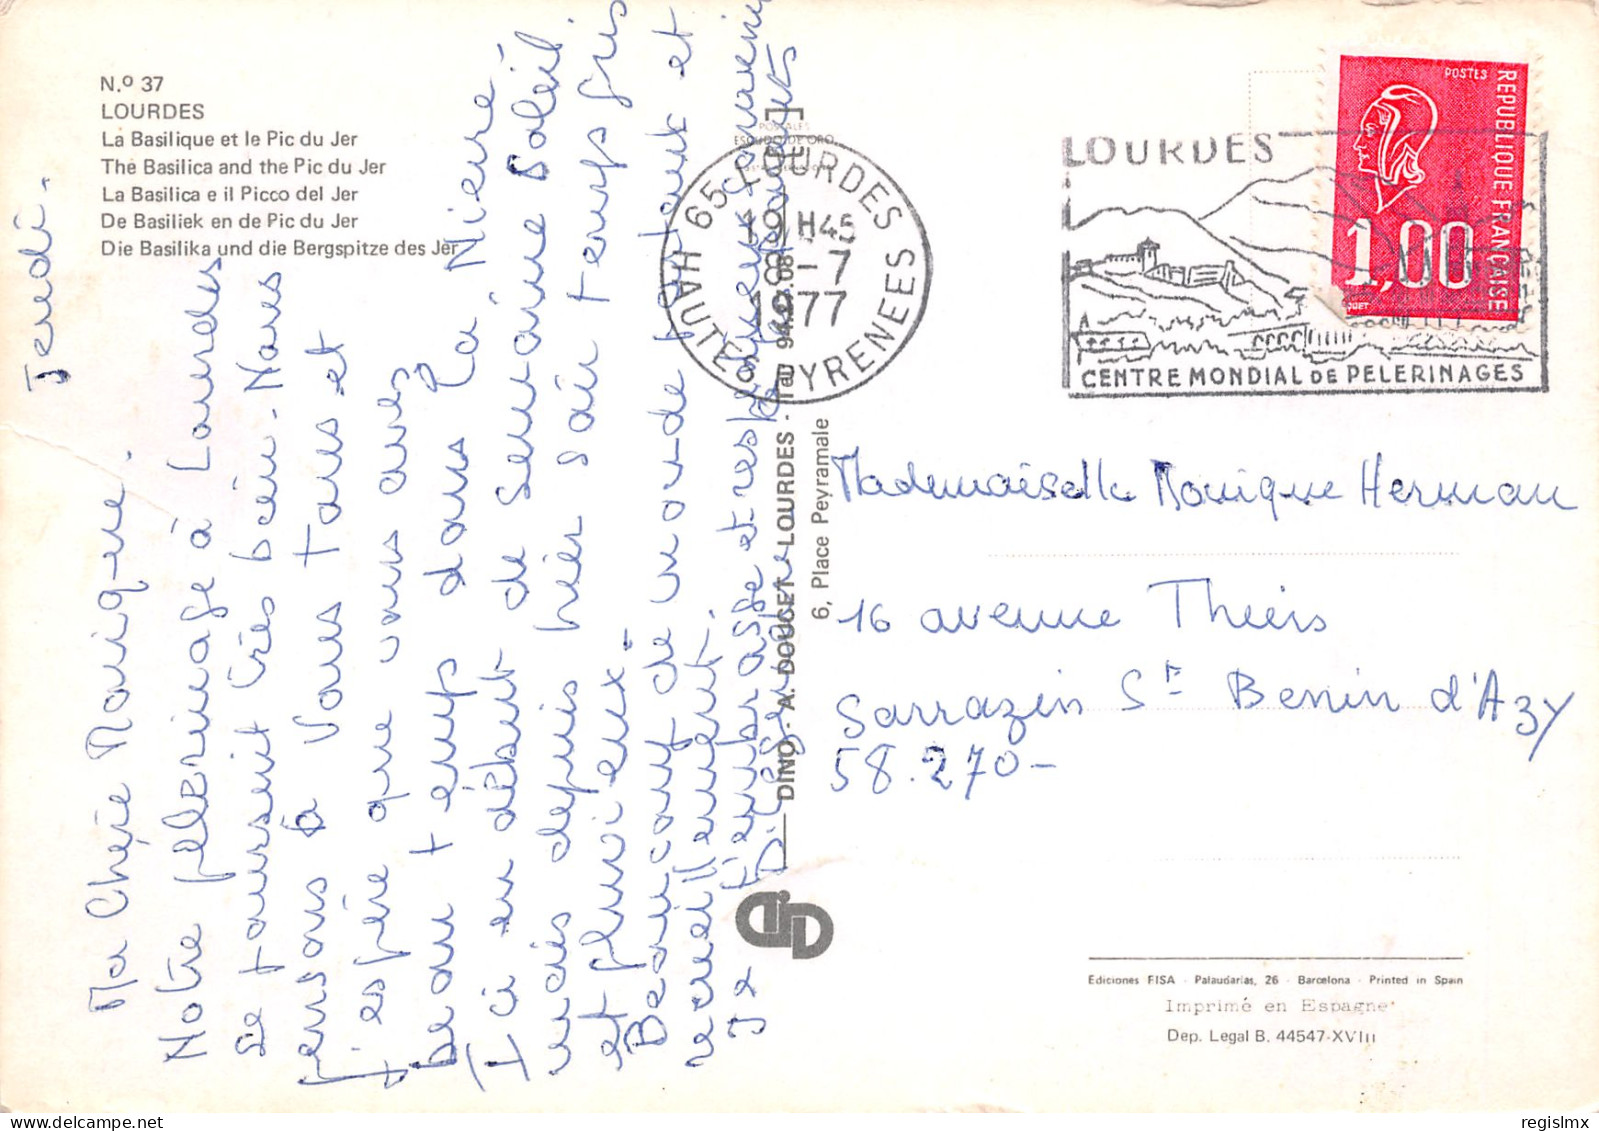 N.º 37
LOURDES
La Basilique et le Pic du Jer
The Basilica and the Pic du Jer
La Basilica e il Picco del Jer
De Basiliek en de Pic du Jer
Die Basilika und die Bergspitze des Jer
Jeudi.
Ma Chère Monique.
Notre pélerinage à Lourdes
se poursuit très bien. Nous
pensons à vous tous et
j'espère que vous avez
beau temps dans la Nièvre
Ici en début de semaine Soleil
mais depuis hier soir temps gris
et pluvieux.
Beaucoup de monde
recueillement.
Je t'embrasse et
POSTALES
ESCUDO DE ORO
DINO - A. DOUCET - LOURDES - Tél.
6, Place Peyramale
65 LOURDES
19H45
-7
1977
HAUTES PYRENEES
LOURDES
CENTRE MONDIAL DE PELERINAGES
POSTES
REPUBLIQUE FRANÇAISE
1,00
Mademoiselle Monique Herman
16 avenue Thiers
Sarrazin St Benin d'Azy
58.270-
Ediciones FISA - Palaudarias, 26 - Barcelona - Printed in Spain
Imprimé en Espagne
Dep. Legal B. 44547-XVIII
regislmx